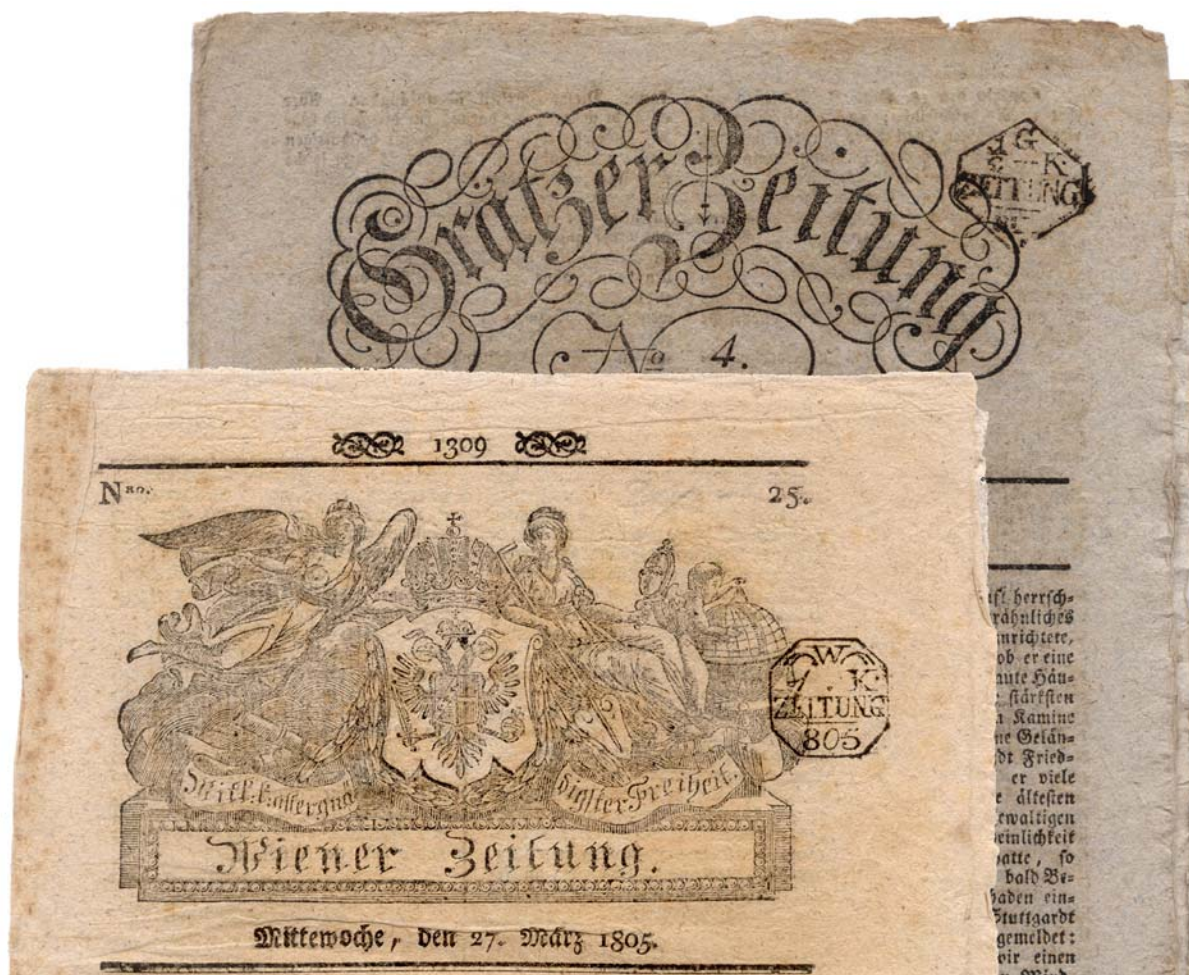 Grätzer Zeitung
No 4.
G
K
ZEITUNG
1309
Nro. 25.
Mit k. k. allergnä
digster Freiheit.
Wiener Zeitung.
W
K.
ZEITUNG
805
Mittewoche, den 27. März 1805.
herrsch-
rähnliches
nrichtete,
ob er eine
aute Häu-
stärksten
Kamine
ne Gelän-
Fried-
er viele
ältesten
ewaltigen
einlichkeit
atte, so
bald Be-
baden ein-
Stuttgardt
gemeldet:
wir einen